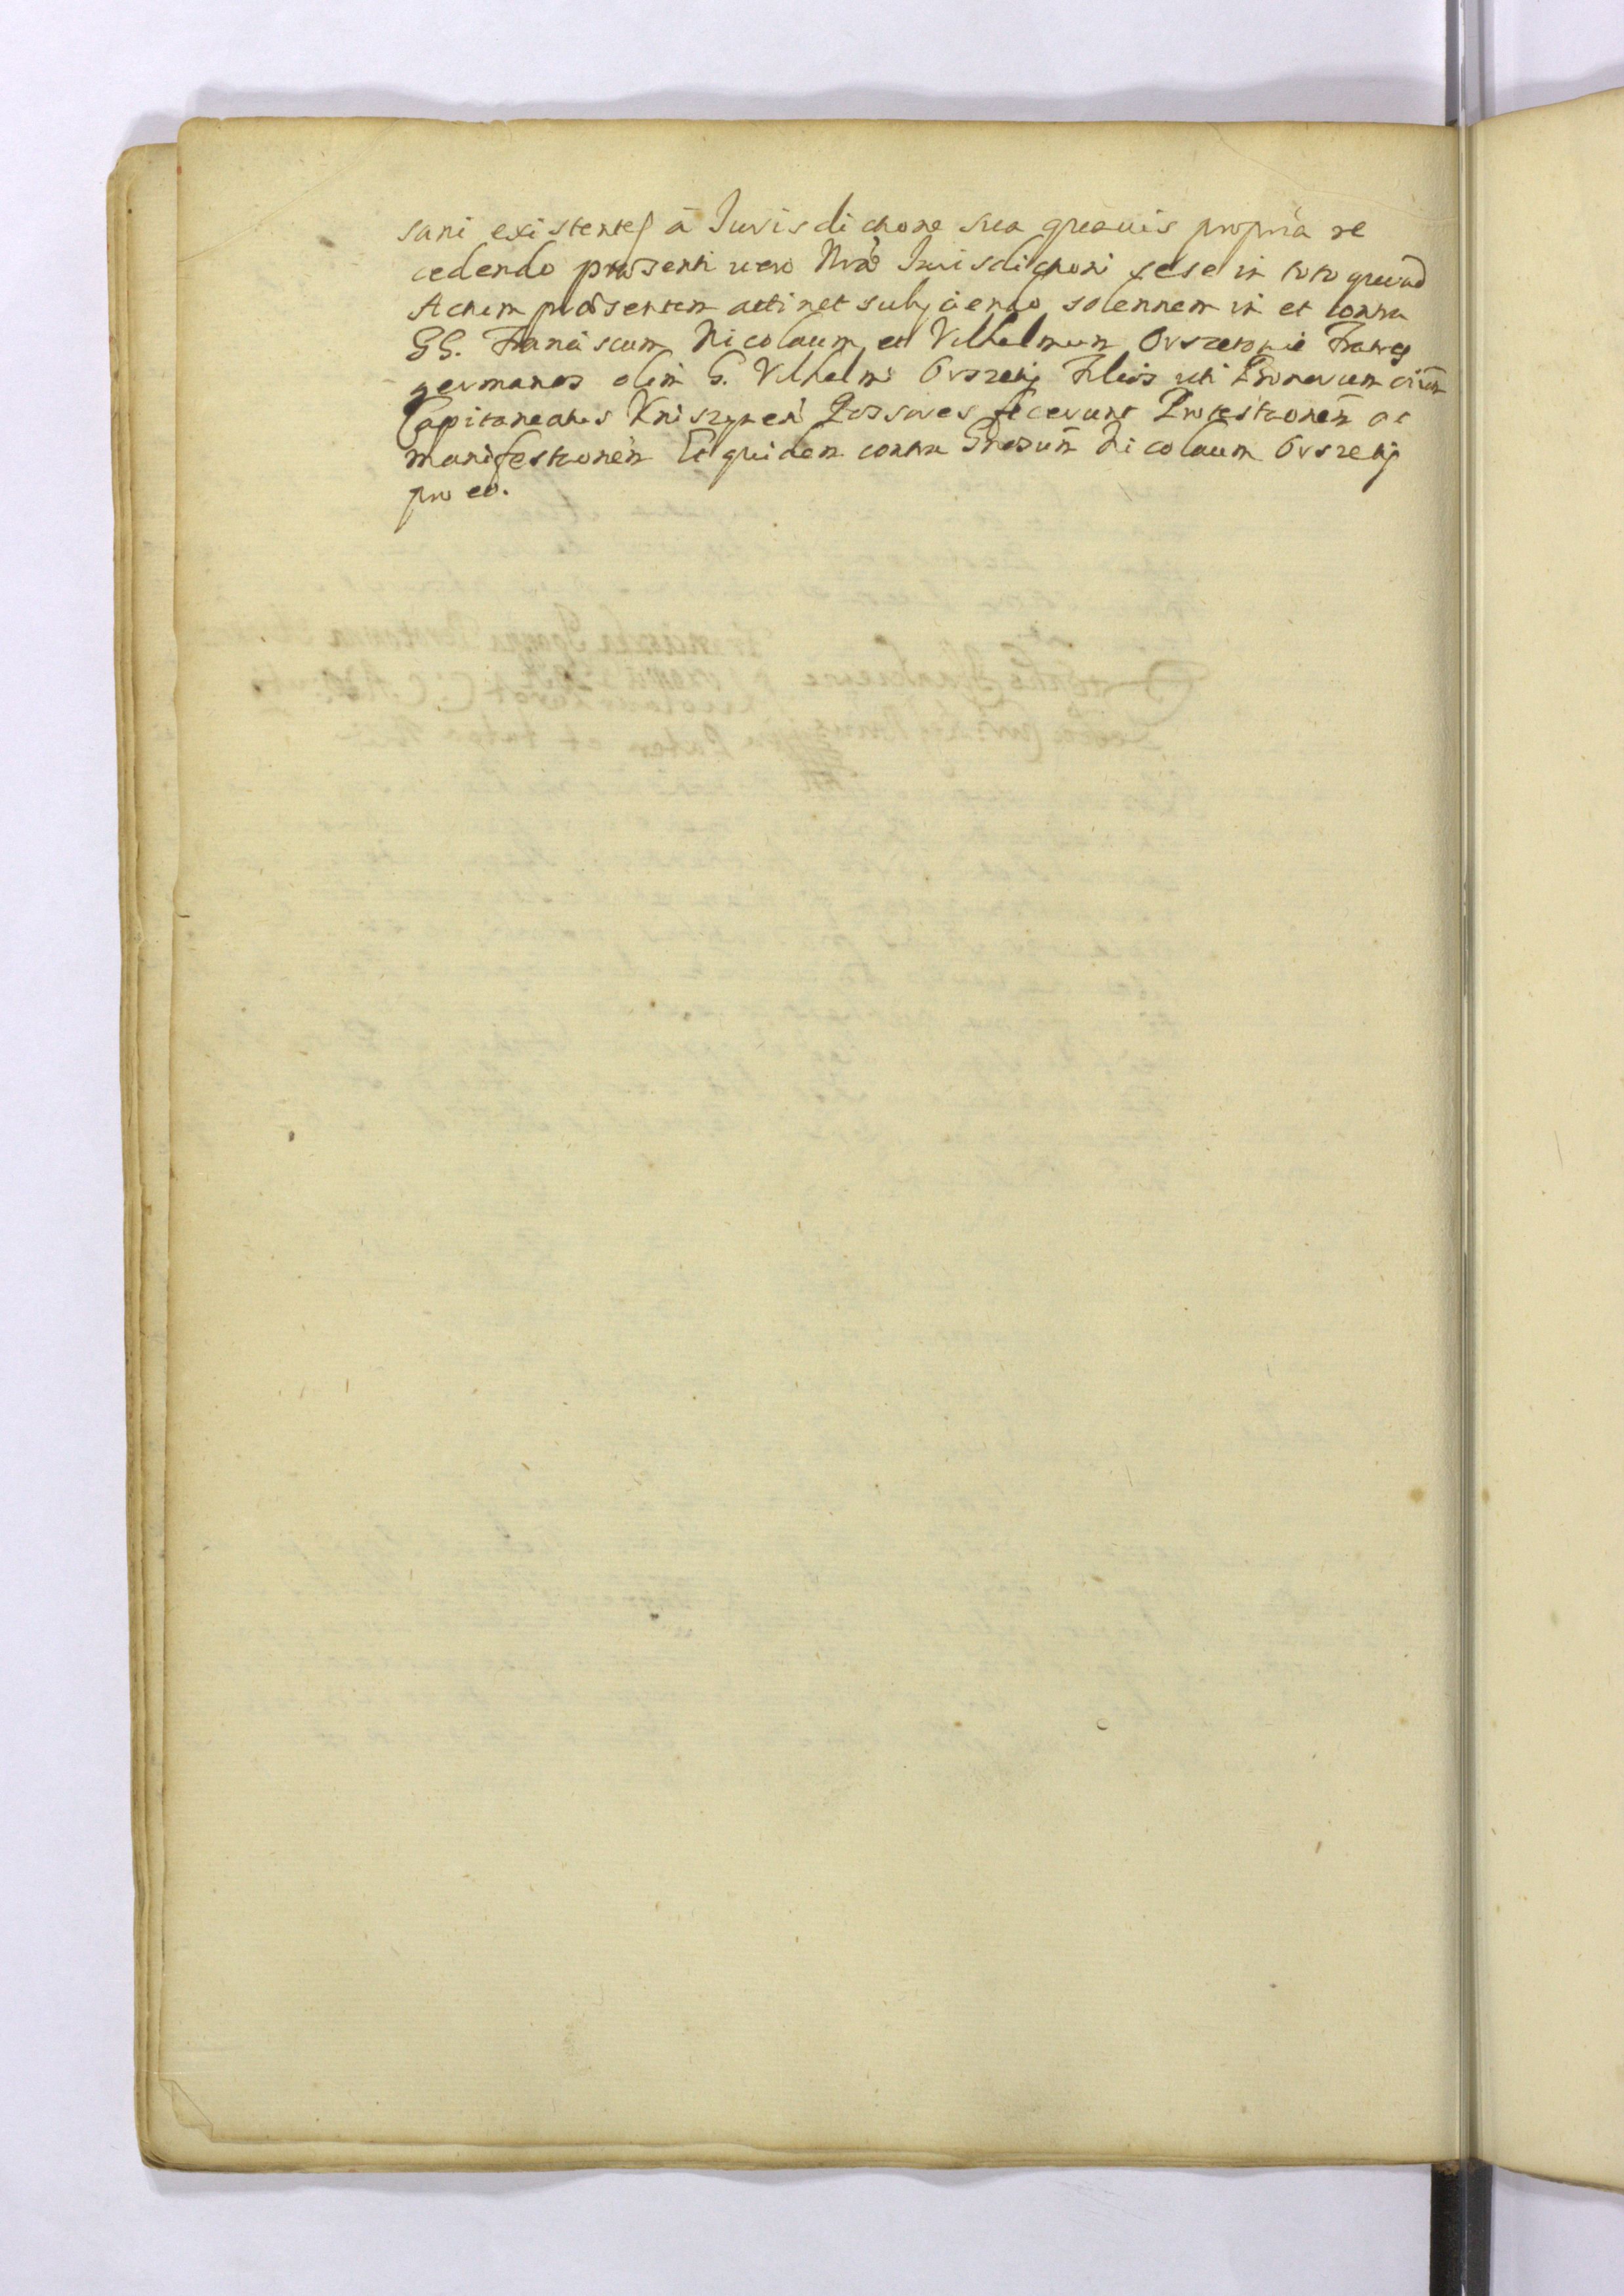 sani existentes à Jurisdictione sua quavis propria re
cedendo præsenti vero Nrae Jurisdictioni sese in toto quoad
Actum præsentem attinet subjiciendo solennem in et contra
GG. Franciscum Nicolaum et Vilhelmum Orszetowie Fratres
germanos olim G. Vilhelmi Orszetij Filios uti Bonorum
Capitaneatus Kniszynen Possores fecerunt Protestaonem ac
manifestaonem Et quidem contra Gnosum Nicolaum Orszetij
pro eo.